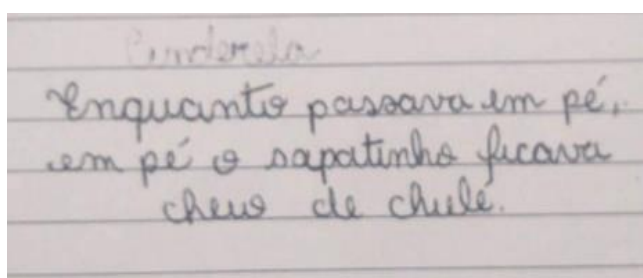 Cinderela
Enquanto passava em pé,
em pé o sapatinho ficava
cheio de chulé.